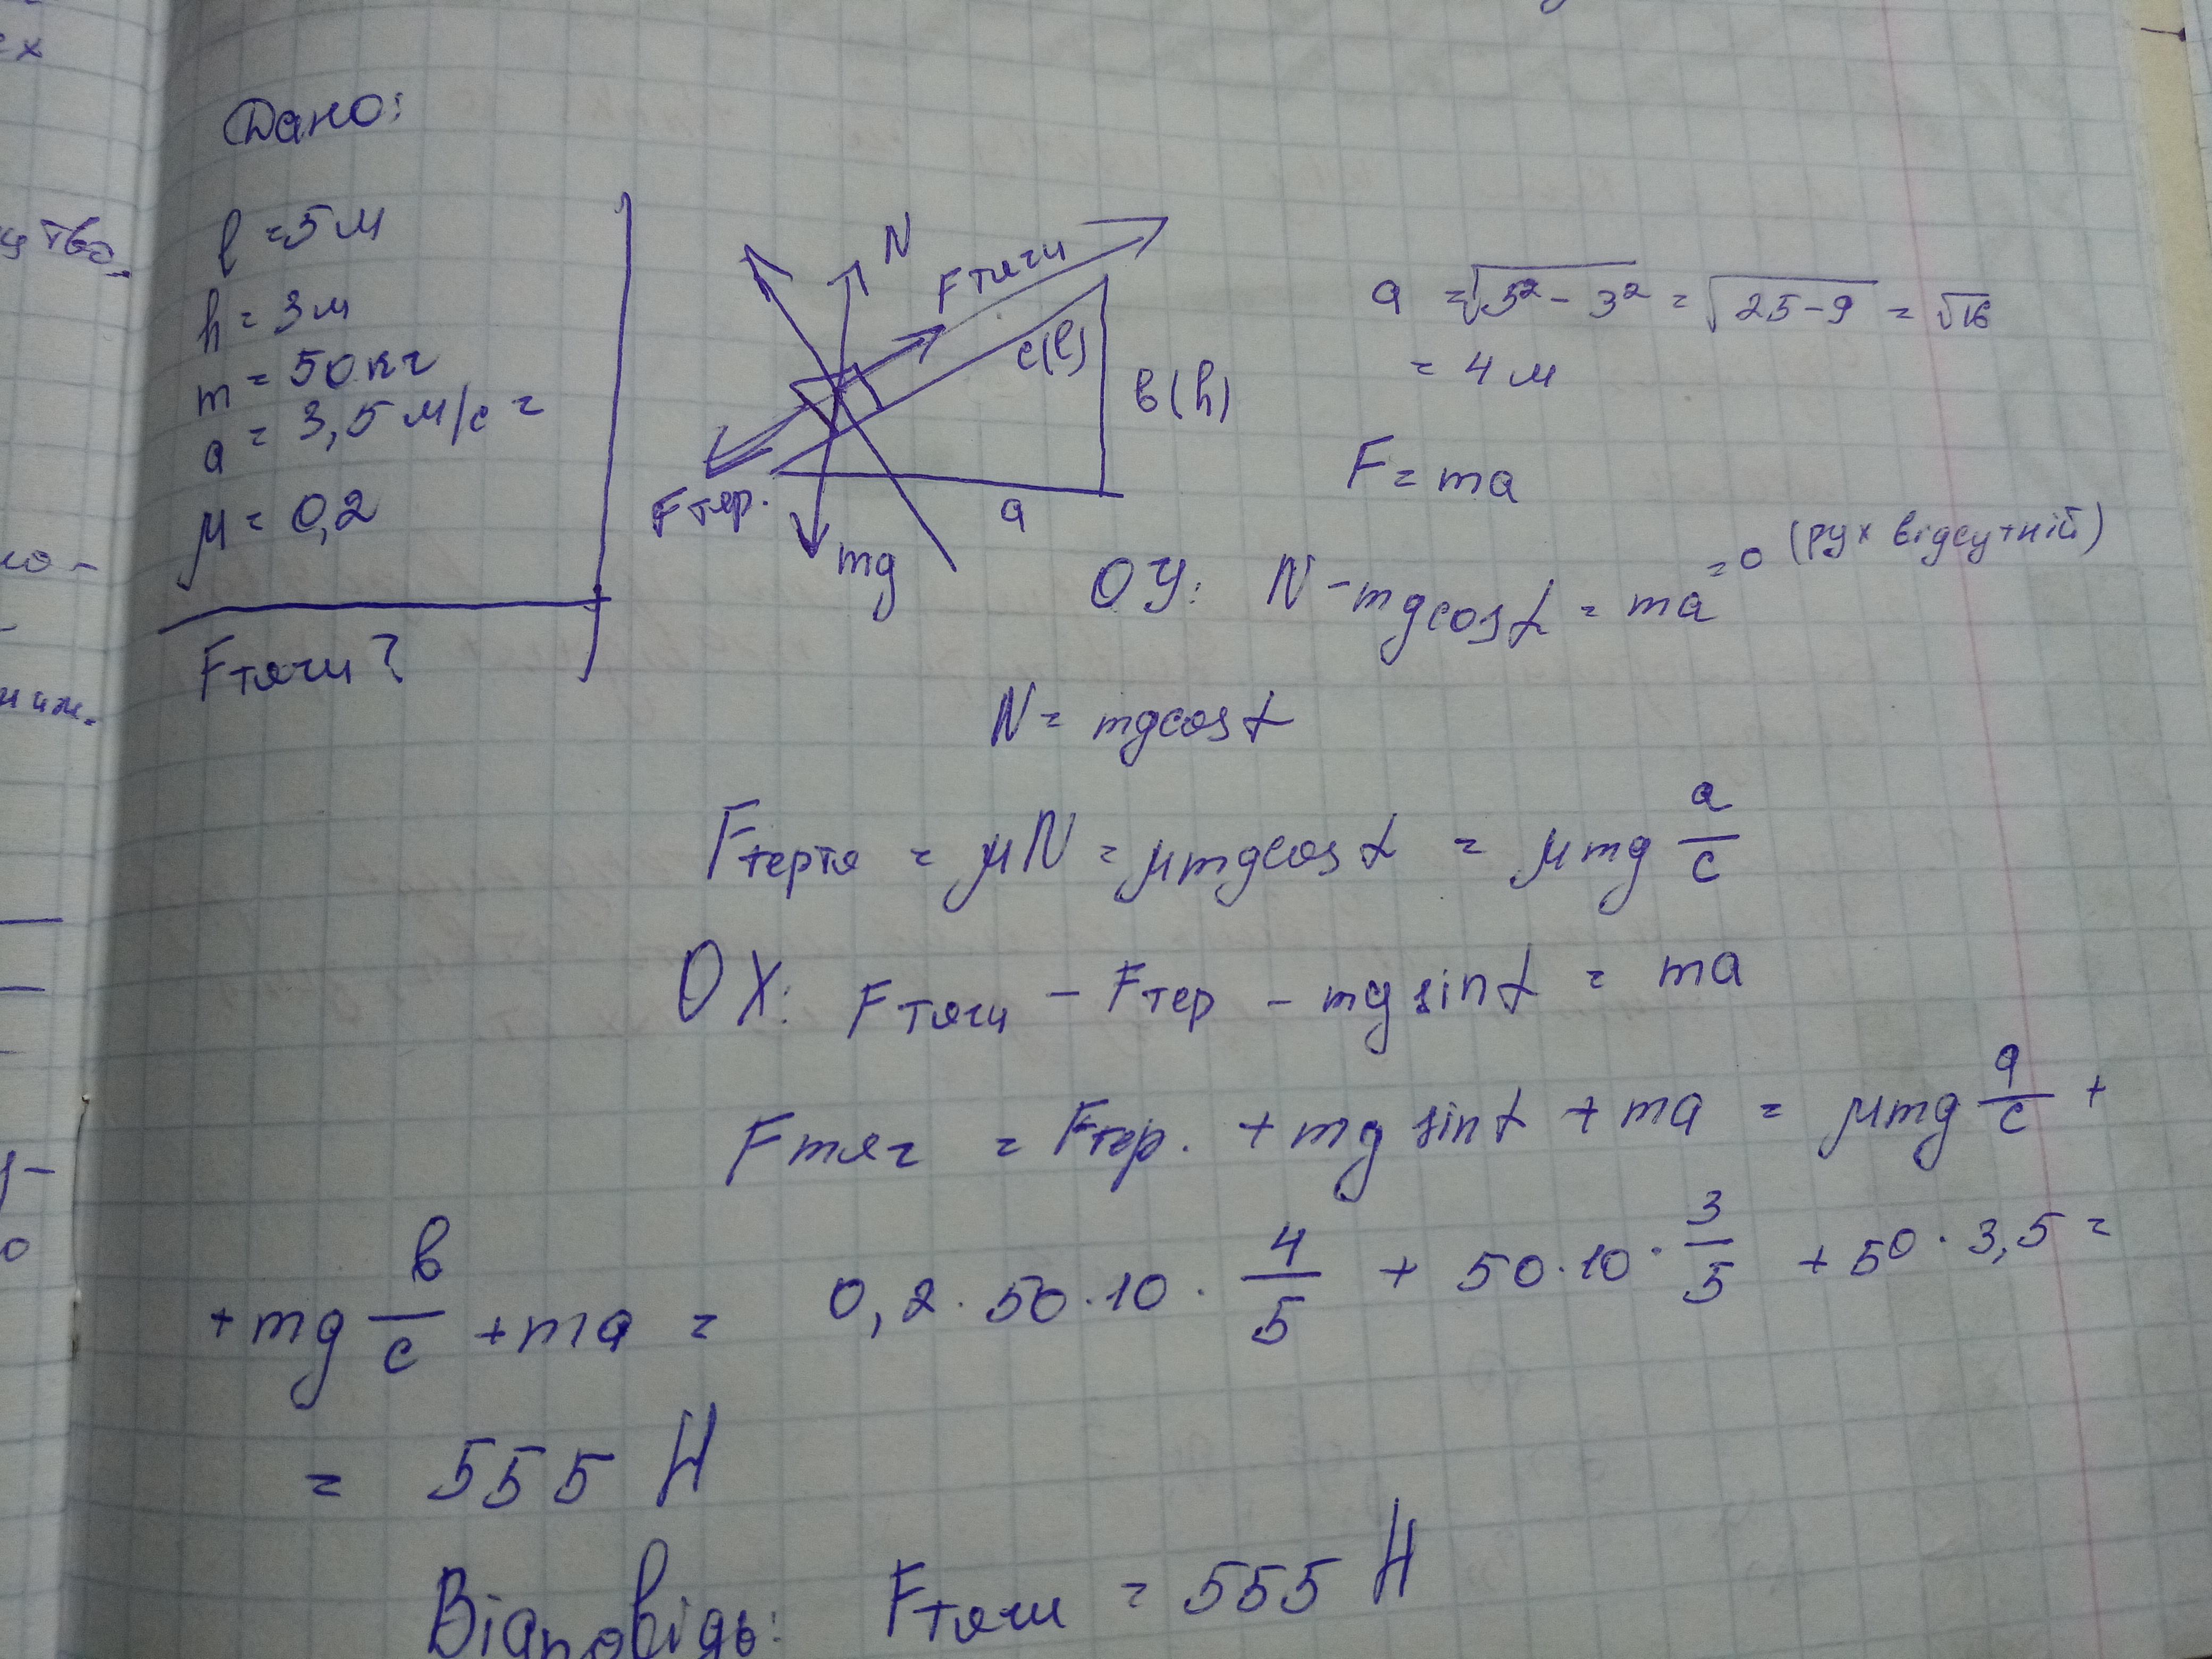 Дано:
l = 5 м
h = 3 м
m = 50 кг
a = 3,5 м/с²
μ = 0,2
Fтяги ?
N
Fтяги
c(l)
в(h)
Fтер.
a
mg
a = √5² - 3² = √25-9 = √16
= 4 м
F = ma
OY: N - mgcosα = ma =0 (рух відсутній)
N = mgcosα
Fтертя = μN = μmgcosα = μmg a/c
OX: Fтяги - Fтер - mg sinα = ma
Fтяг = Fтер. + mg sinα + ma = μmg a/c +
+ mg в/c + ma = 0,2 · 50 · 10 · 4/5 + 50 · 10 · 3/5 + 50 · 3,5 =
= 555 Н
Відповідь: Fтяги = 555 Н